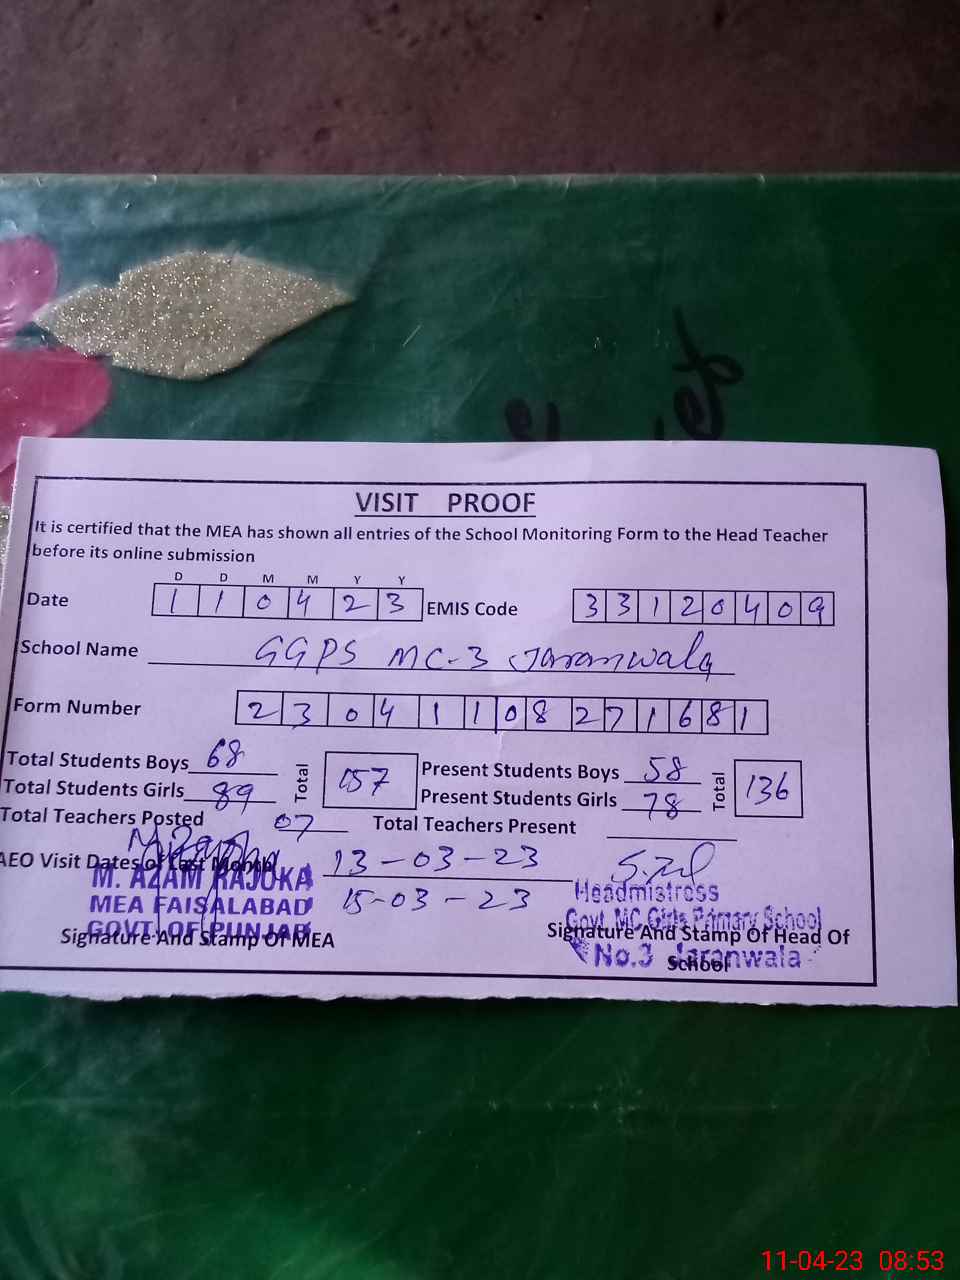 VISIT PROOF
It is certified that the MEA has shown all entries of the School Monitoring Form to the Head Teacher
before its online submission
D D M M Y Y
Date 1 1 0 4 2 3 EMIS Code 3 3 1 2 0 4 0 9
School Name GGPS MC-3 Jaranwala
Form Number 2 3 0 4 1 1 0 8 2 7 1 6 8 1
Total Students Boys 68 Total 157 Present Students Boys 58 Total 136
Total Students Girls 89 Present Students Girls 78
Total Teachers Posted 07 Total Teachers Present
AEO Visit Dates of Last Month 13-03-23
15-03-23
M. AZAM RAJOKA
MEA FAISALABAD
GOVT. OF PUNJAB
Signature And Stamp Of MEA
Headmistress
Govt. MC Girls Primary School
No.3 Jaranwala
Signature And Stamp Of Head Of
School
11-04-23 08:53